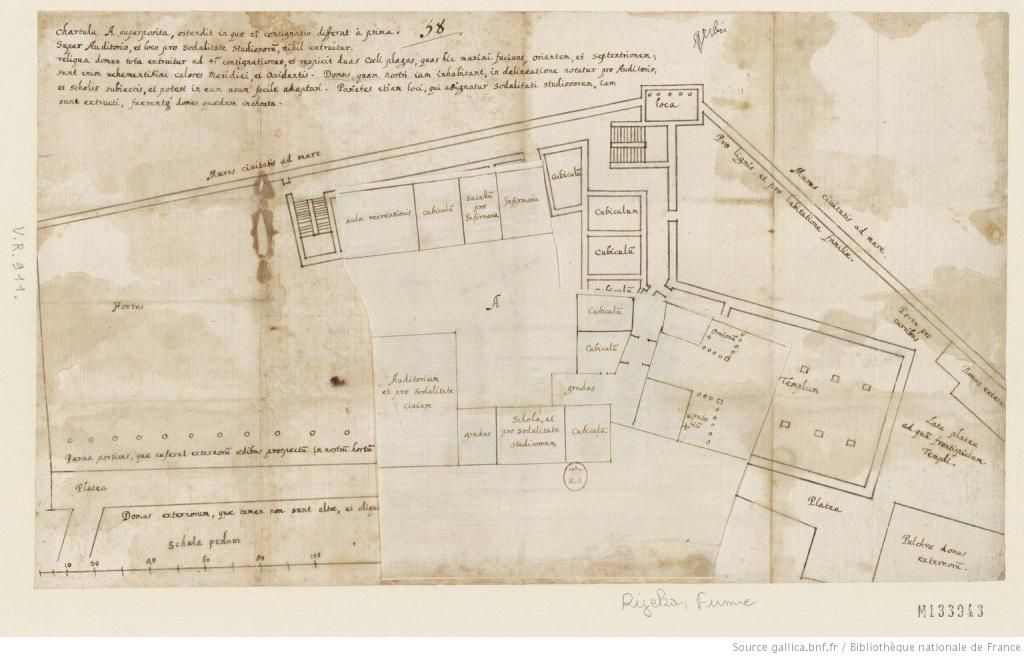 58
Chartula A superposita, ostendit in quo 2ª contignatio differat à prima.
Super Auditorio, et loco pro Sodalitate Studiosorū, nihil extruitur,
reliqua domus tota extruitur ad 4 contignationes, et respicit duas Cœli plagas, quas hic maximi faciunt, orientem, et Septentrionem;
sunt enim vehementissimi calores Meridiei, et Occidentis. Domus, quam nostri iam inhabitant, in delineatione notatur pro Auditorio,
et Scholis subiectis, et potest in eum usum facile adaptari. Parietes etiam loci, qui assignatur Sodalitati studiosorum, iam
sunt extructi, fueruntq domus quædam inchoata.
Murus civitatis ad mare
loca
Pro lignis et pro habitatione familiæ.
Murus civitatis ad mare.
Cubiculū
aula recreationis
Cubiculū
Sacellū
pro
Infirmaria
Infirmaria
Cubiculum
Cubiculū
Hortus
A
Cubiculū
Cubiculū
gradus
Auditorium
et pro Sodalitate
Civium
gradus
Schola, et
pro Sodalitate
Studiosorum
Cubiculū
Templum
Porta pro
curribus
Domus extern.
Lata platea
ad quā frontispicium
Templi.
Parva porticus, quæ auferat externorū ædibus prospectū in nostrū hortū
Platea
Domus externorum, quæ tamen non sunt altæ, et aliqui
Schala pedum
10 20 40 60 80 100
Platea
Pulchræ domus
externorū.
V.R. 911.
Rijeka, Fiume
M133943
Source gallica.bnf.fr / Bibliothèque nationale de France